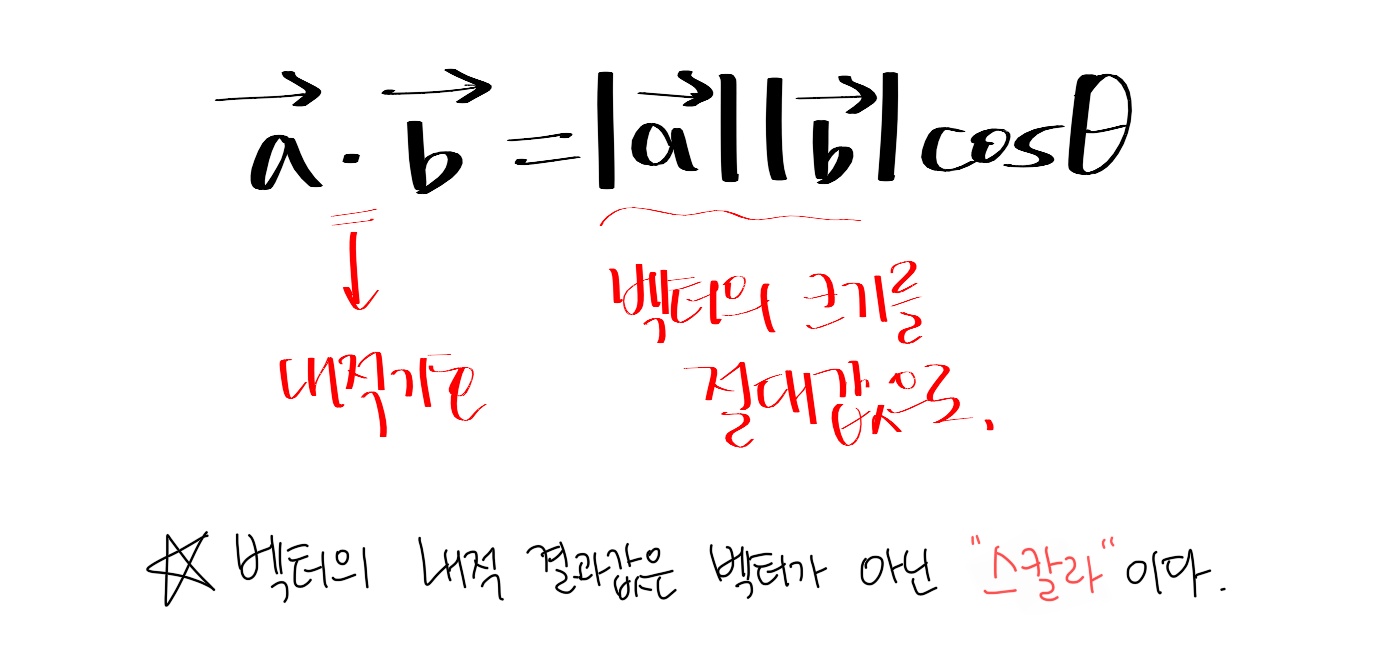 a⃗ · b⃗ = |a⃗||b⃗| cosθ
내적기호
벡터의 크기를
절대값으로.
☆ 벡터의 내적 결과값은 벡터가 아닌 "스칼라"이다.